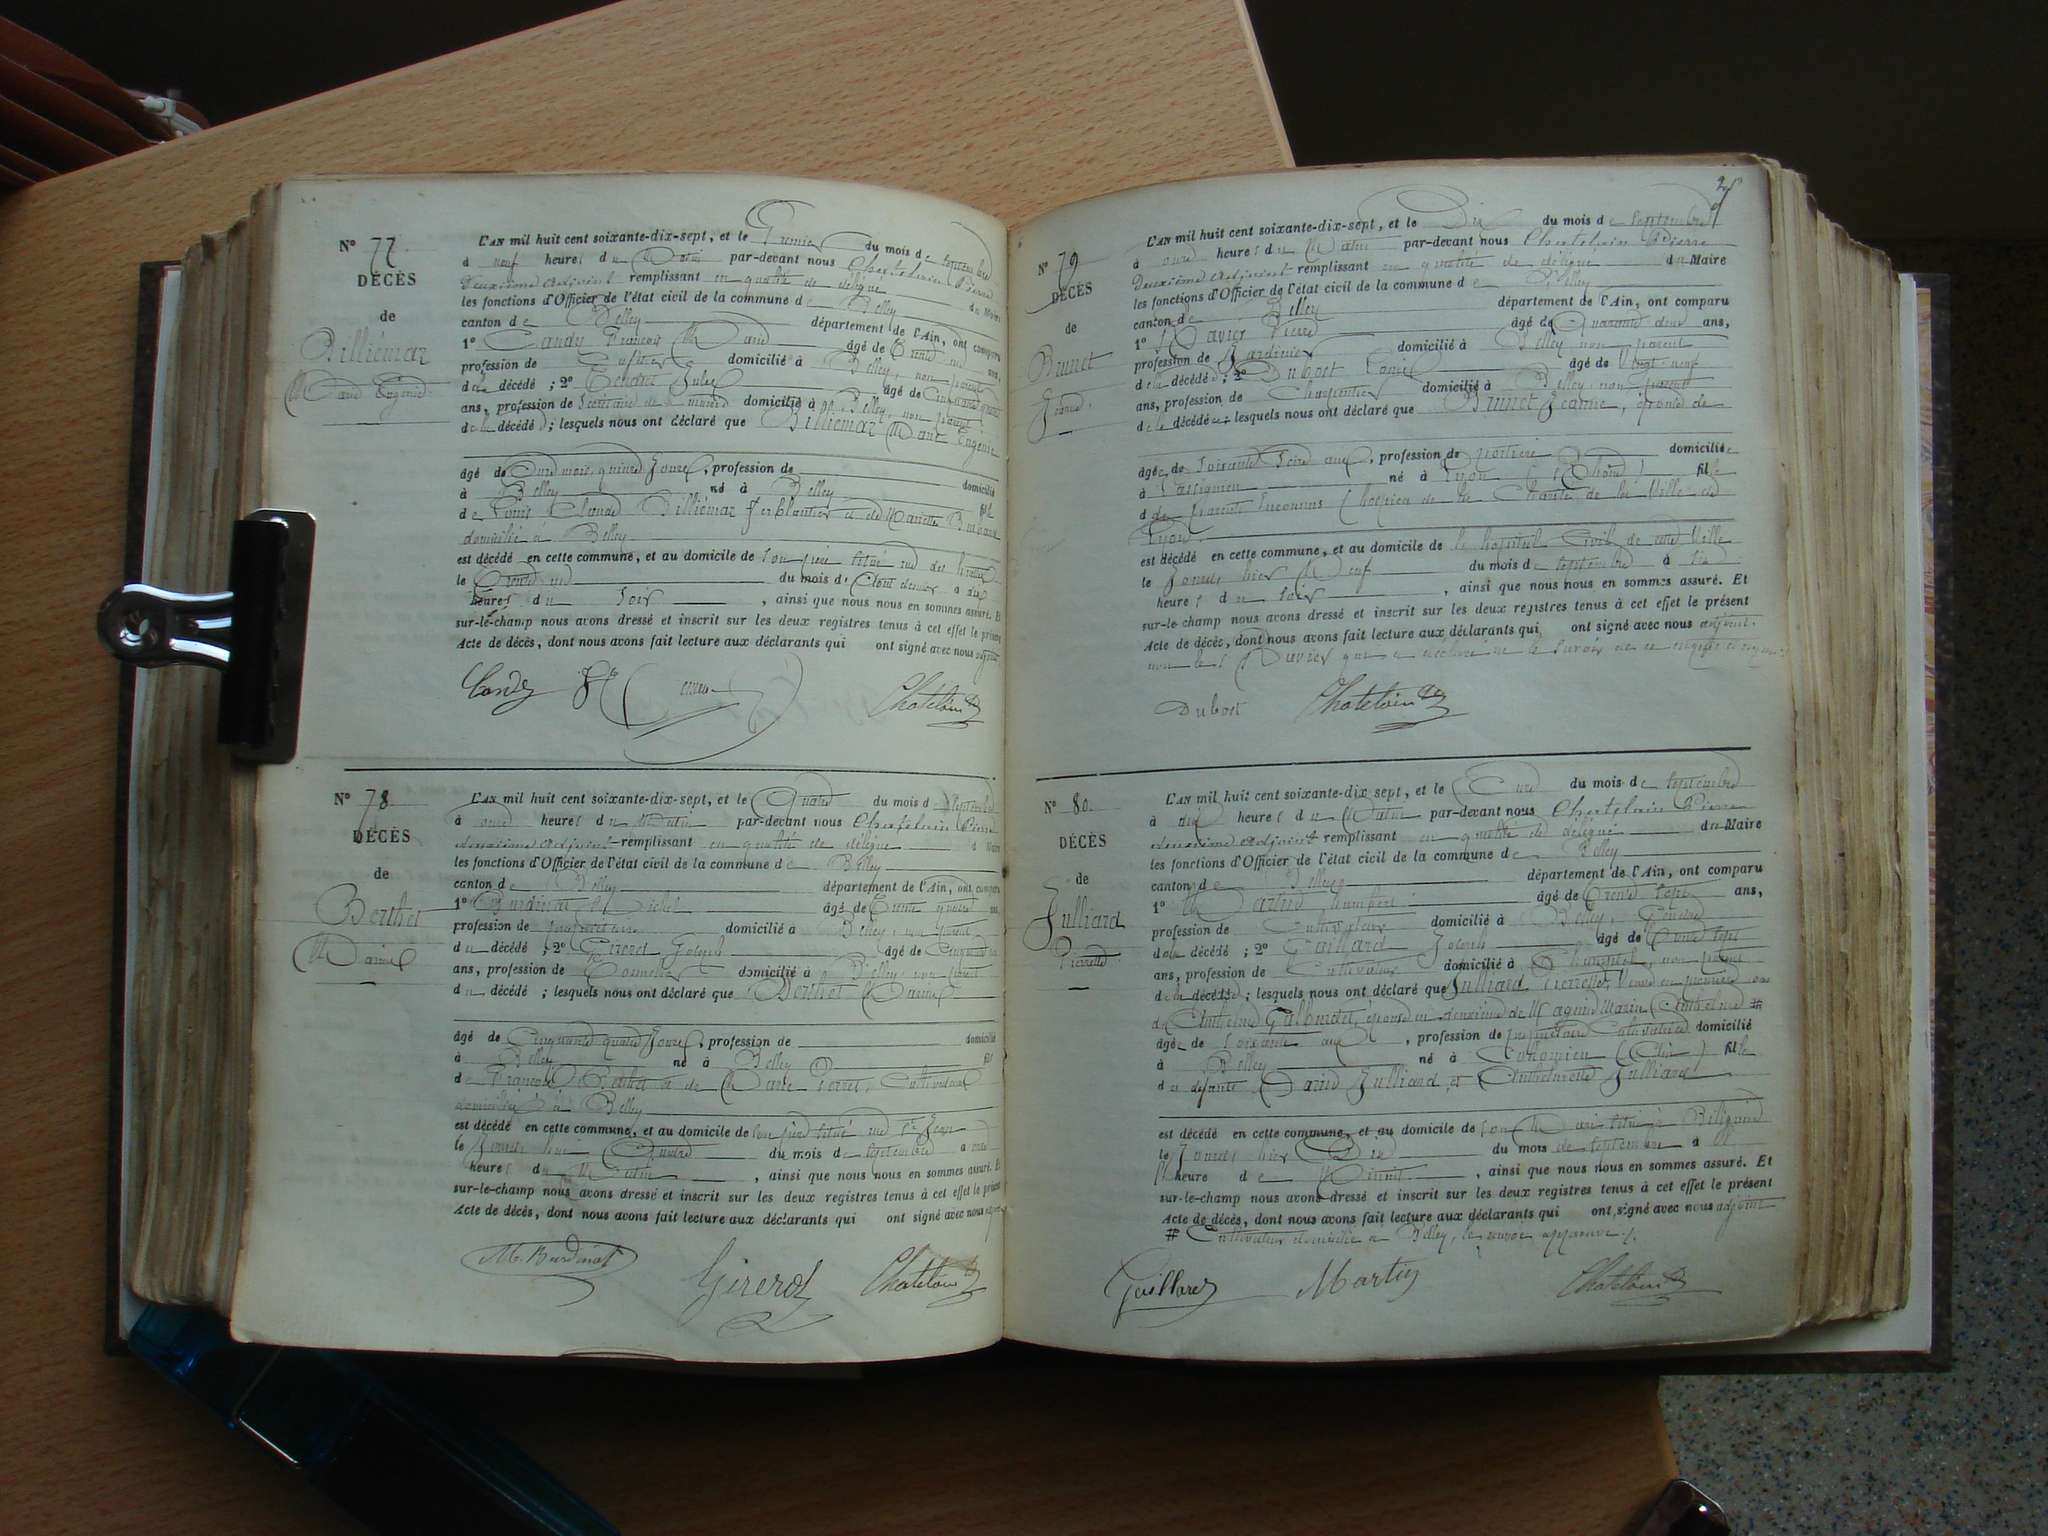 N° 77
DÉCÈS
de
Billiémaz
Marie Eugénie
L'AN mil huit cent soixante-dix-sept, et le Premier du mois de septembre
à neuf heures du Matin par-devant nous Chatelain Pierre
deuxième adjoint remplissant en qualité de délégué du Maire
les fonctions d'Officier de l'état civil de la commune de Belley
canton de Belley département de l'Ain, ont comparu
1° Candy François Marie âgé de Trente ans,
profession de domicilié à Belley, non parent
de la décédée ; 2° Jules âgé de Cinquante
ans, profession de Secrétaire de la mairie domicilié à Belley, non parent
de la décédée ; lesquels nous ont déclaré que Billiémaz Marie Eugénie
âgé de Onze mois quinze Jours, profession de domicilié
à Belley né à Belley fille
de Louis Claude Billiémaz ferblantier et de Mariette
domicilié à Belley
est décédé en cette commune, et au domicile de son père situé rue des
le Trente un du mois d'Août dernier à dix
heures du soir, ainsi que nous nous en sommes assuré. Et
sur-le-champ nous avons dressé et inscrit sur les deux registres tenus à cet effet le présent
Acte de décès, dont nous avons fait lecture aux déclarants qui ont signé avec nous adjoint
Candy Chatelain
N° 78
DÉCÈS
de
Berthet
Marius
L'AN mil huit cent soixante-dix-sept, et le Quatre du mois de Septembre
à onze heures du Matin par-devant nous Chatelain Pierre
deuxième adjoint remplissant en qualité de délégué du Maire
les fonctions d'Officier de l'état civil de la commune de Belley
canton de Belley département de l'Ain, ont comparu
1° Burdinat Michel âgé de Trente quatre ans,
profession de domicilié à Belley, non parent
du décédé ; 2° Girerd Joseph âgé de Cinquante
ans, profession de Tonnelier domicilié à Belley non parent
du décédé ; lesquels nous ont déclaré que Berthet Marius
âgé de Cinquante quatre Jours, profession de domicilié
à Belley né à Belley fils
de François Berthet et de Marie, Cultivateurs
domiciliés à Belley
est décédé en cette commune, et au domicile de son père situé rue St Jean
le Jour Quatre du mois de septembre à onze
heures du Matin, ainsi que nous nous en sommes assuré. Et
sur-le-champ nous avons dressé et inscrit sur les deux registres tenus à cet effet le présent
Acte de décès, dont nous avons fait lecture aux déclarants qui ont signé avec nous adjoint
M. Burdinat Girerd Chatelain
N° 79
DÉCÈS
de
Brunet
Jeanne
L'AN mil huit cent soixante-dix-sept, et le Dix du mois de septembre
à onze heures du Matin par-devant nous Chatelain Pierre
deuxième adjoint remplissant en qualité de délégué du Maire
les fonctions d'Officier de l'état civil de la commune de Belley
canton de Belley département de l'Ain, ont comparu
1° Pierre âgé de Quarante deux ans,
profession de Jardinier domicilié à Belley non parent
de la décédée ; 2° Dubost Louis âgé de Vingt-neuf
ans, profession de Charpentier domicilié à Belley non parent
de la décédée ; lesquels nous ont déclaré que Brunet Jeanne, épouse de
âgée de soixante seize ans, profession de domiciliée
à né à Lyon (Rhône) fille
de parents Inconnus (hospice de la Charité de la Ville de
Lyon
est décédé en cette commune, et au domicile de le hôpital Civil de cette Ville
le Jour hier Neuf du mois de septembre à six
heures du soir, ainsi que nous nous en sommes assuré. Et
sur-le-champ nous avons dressé et inscrit sur les deux registres tenus à cet effet le présent
Acte de décès, dont nous avons fait lecture aux déclarants qui ont signé avec nous adjoint.
non le qui a déclaré ne le savoir de ce enquis
Dubost Chatelain
N° 80
DÉCÈS
de
Julliard
Pierrette
L'AN mil huit cent soixante-dix-sept, et le Onze du mois de septembre
à dix heures du Matin par-devant nous Chatelain Pierre
deuxième adjoint remplissant en qualité de délégué du Maire
les fonctions d'Officier de l'état civil de la commune de Belley
canton de Belley département de l'Ain, ont comparu
1° Martin âgé de Trente sept ans,
profession de Cultivateur domicilié à Belley,
de la décédée ; 2° Gaillard Joseph âgé de Trente sept
ans, profession de Cultivateur domicilié à non parent
de la décédée ; lesquels nous ont déclaré que Julliard Pierrette, Veuve en premières
de Anthelme épouse en deuxième de Anthelme #
âgée de soixante ans, profession de propriétaire Cultivatrice domicilié
à Belley né à Colomieu (Ain) fille
de défunts Julliard et Anthelmette Julliard
est décédé en cette commune, et au domicile de son Mari situé à Billignin
le Jour hier Dix du mois de septembre à
heure de Minuit, ainsi que nous nous en sommes assuré. Et
sur-le-champ nous avons dressé et inscrit sur les deux registres tenus à cet effet le présent
Acte de décès, dont nous avons fait lecture aux déclarants qui ont signé avec nous adjoint
# Cultivateur domicilié à Belley, le renvoi approuvé.
Gaillard Martin Chatelain